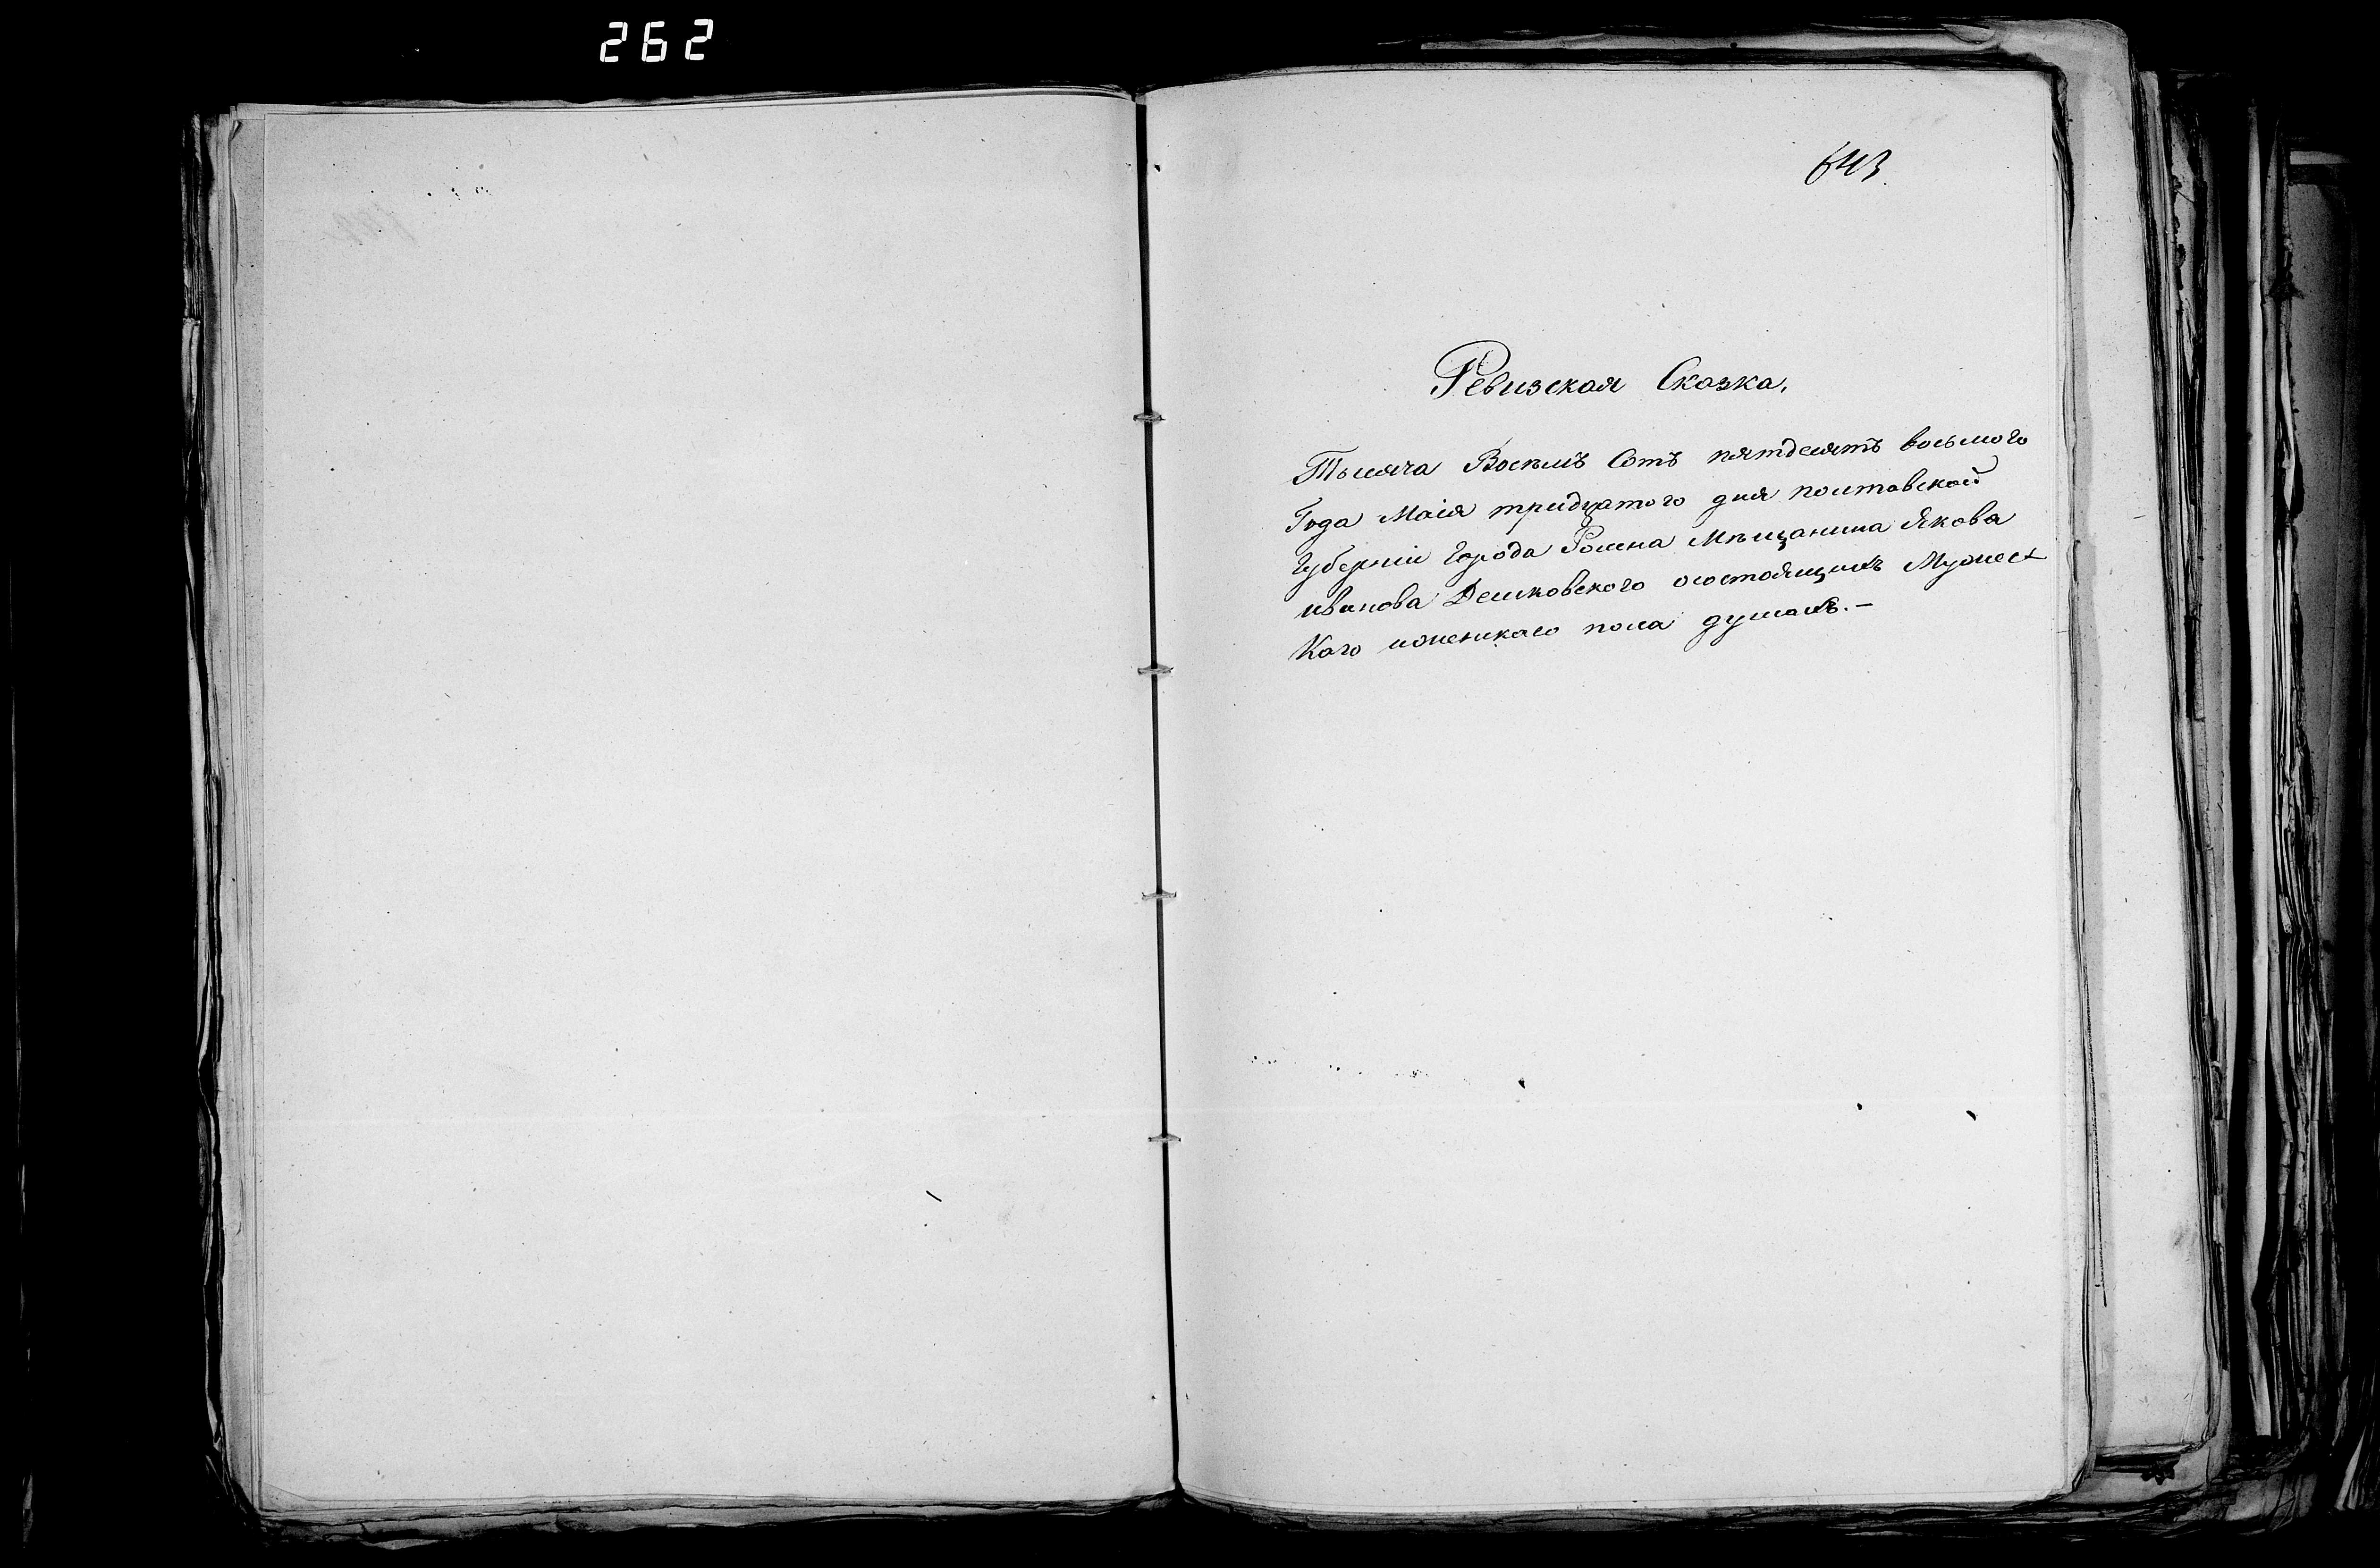 262
643
Ревизская Сказка.
Тысяча Восѣмъ Сотъ пятдесятъ восьмого
Года Маія тридцатого дня полтавской
Губерніи Города Ромна Мѣщанина Якова
иванова осостоящихъ Мужес
Кого иженскаго пола душахъ.-